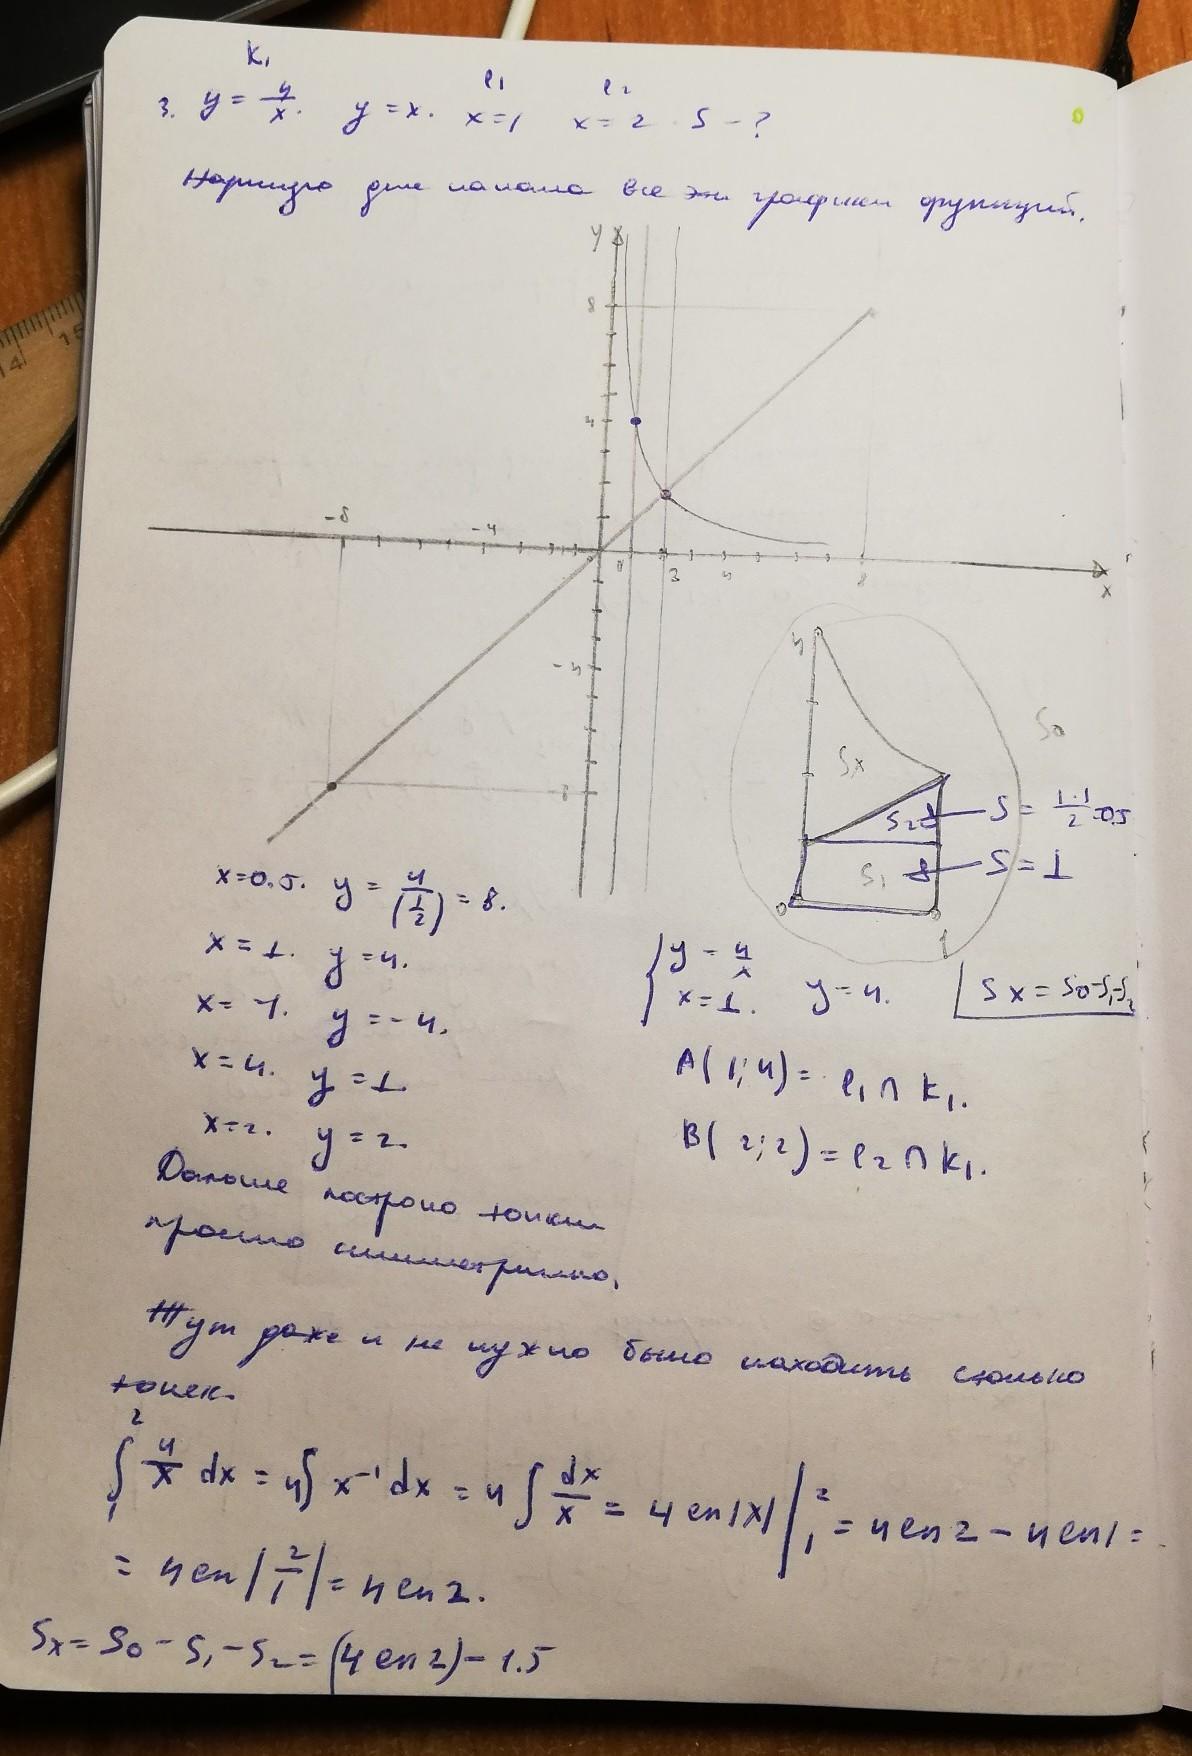 K₁ l₁ l₂
3. y = 4/x. y = x. x=1 x=2. S - ?
Нарисую для начала все эти графики функций.
y
8
4
-8 -4 1 3 4 8 x
-4
8
4 S₀
Sx
S₂ S = 1·1/2 = 0.5
S₁ S = 1
0 1
x=0.5. y = 4/(1/2) = 8.
x = 1. y = 4.
x = -1. y = -4.
x = 4. y = 1.
x=2. y = 2.
{ y = 4/x
x = 1. y = 4. Sx = S₀-S₁-S₂
A( 1; 4) = l₁ ∩ K₁.
B( 2; 2) = l₂ ∩ K₁.
Дальше построю точки
просто симметрично.
Тут даже и не нужно было находить столько
точек.
∫₁² 4/x dx = 4∫ x⁻¹ dx = 4 ∫ dx/x = 4 ln|x| |₁² = 4 ln 2 - 4 ln 1 =
= 4 ln |2/1| = 4 ln 2.
Sx = S₀ - S₁ - S₂ = (4 ln 2) - 1.5